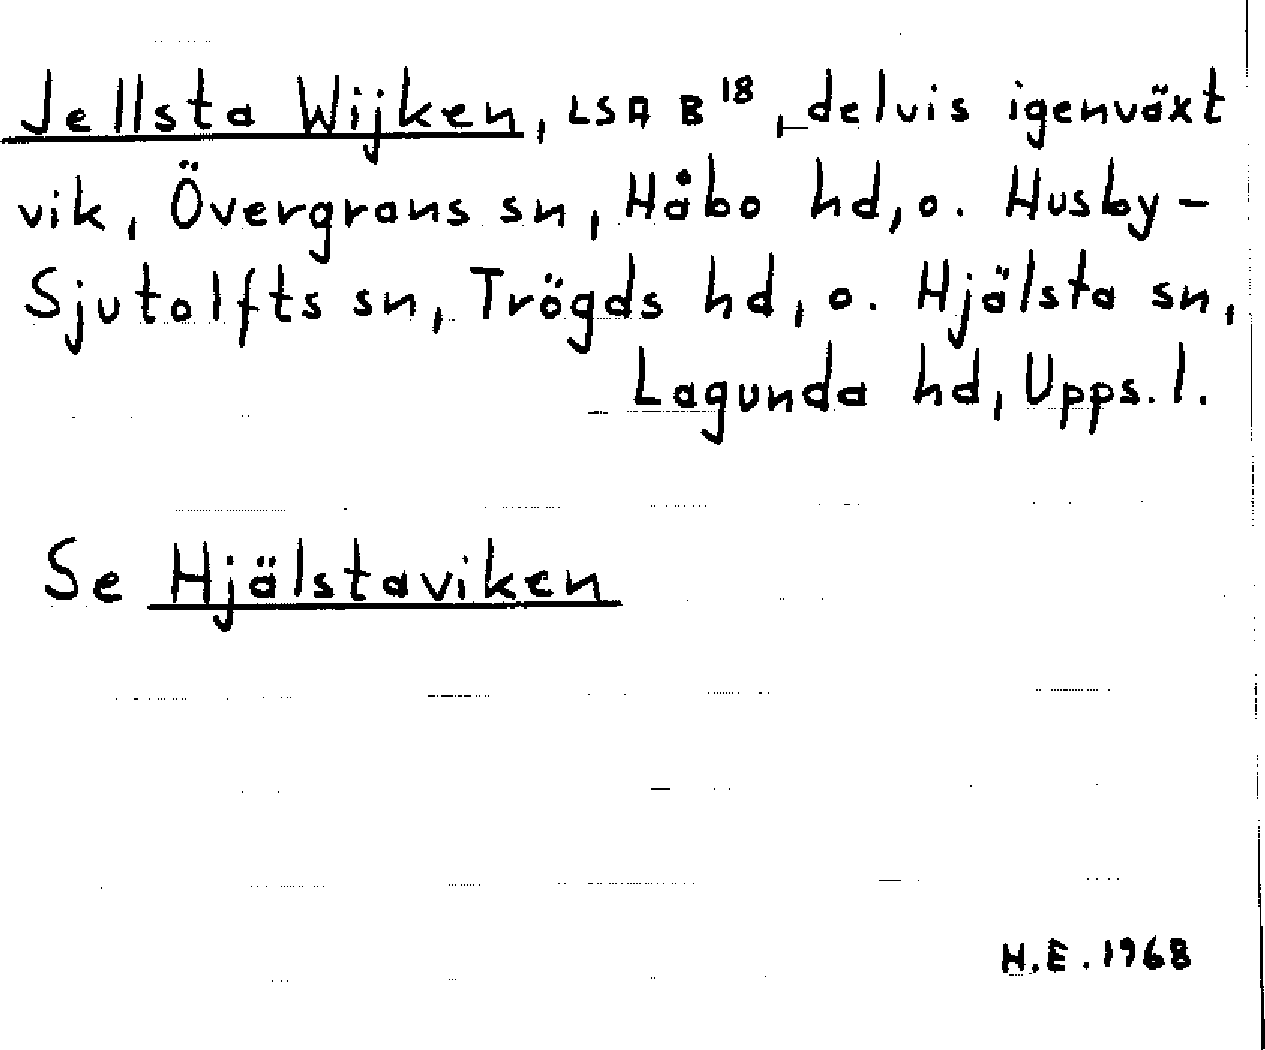 Jellsta Wijken, LSA B 18, delvis igenväxt
vik, Övergrans sn, Håbo hd, o. Husby-
Sjutolfts sn, Trögds hd, o. Hjälsta sn,
Lagunda hd, Upps. l.
Se Hjälstaviken
H.E. 1968